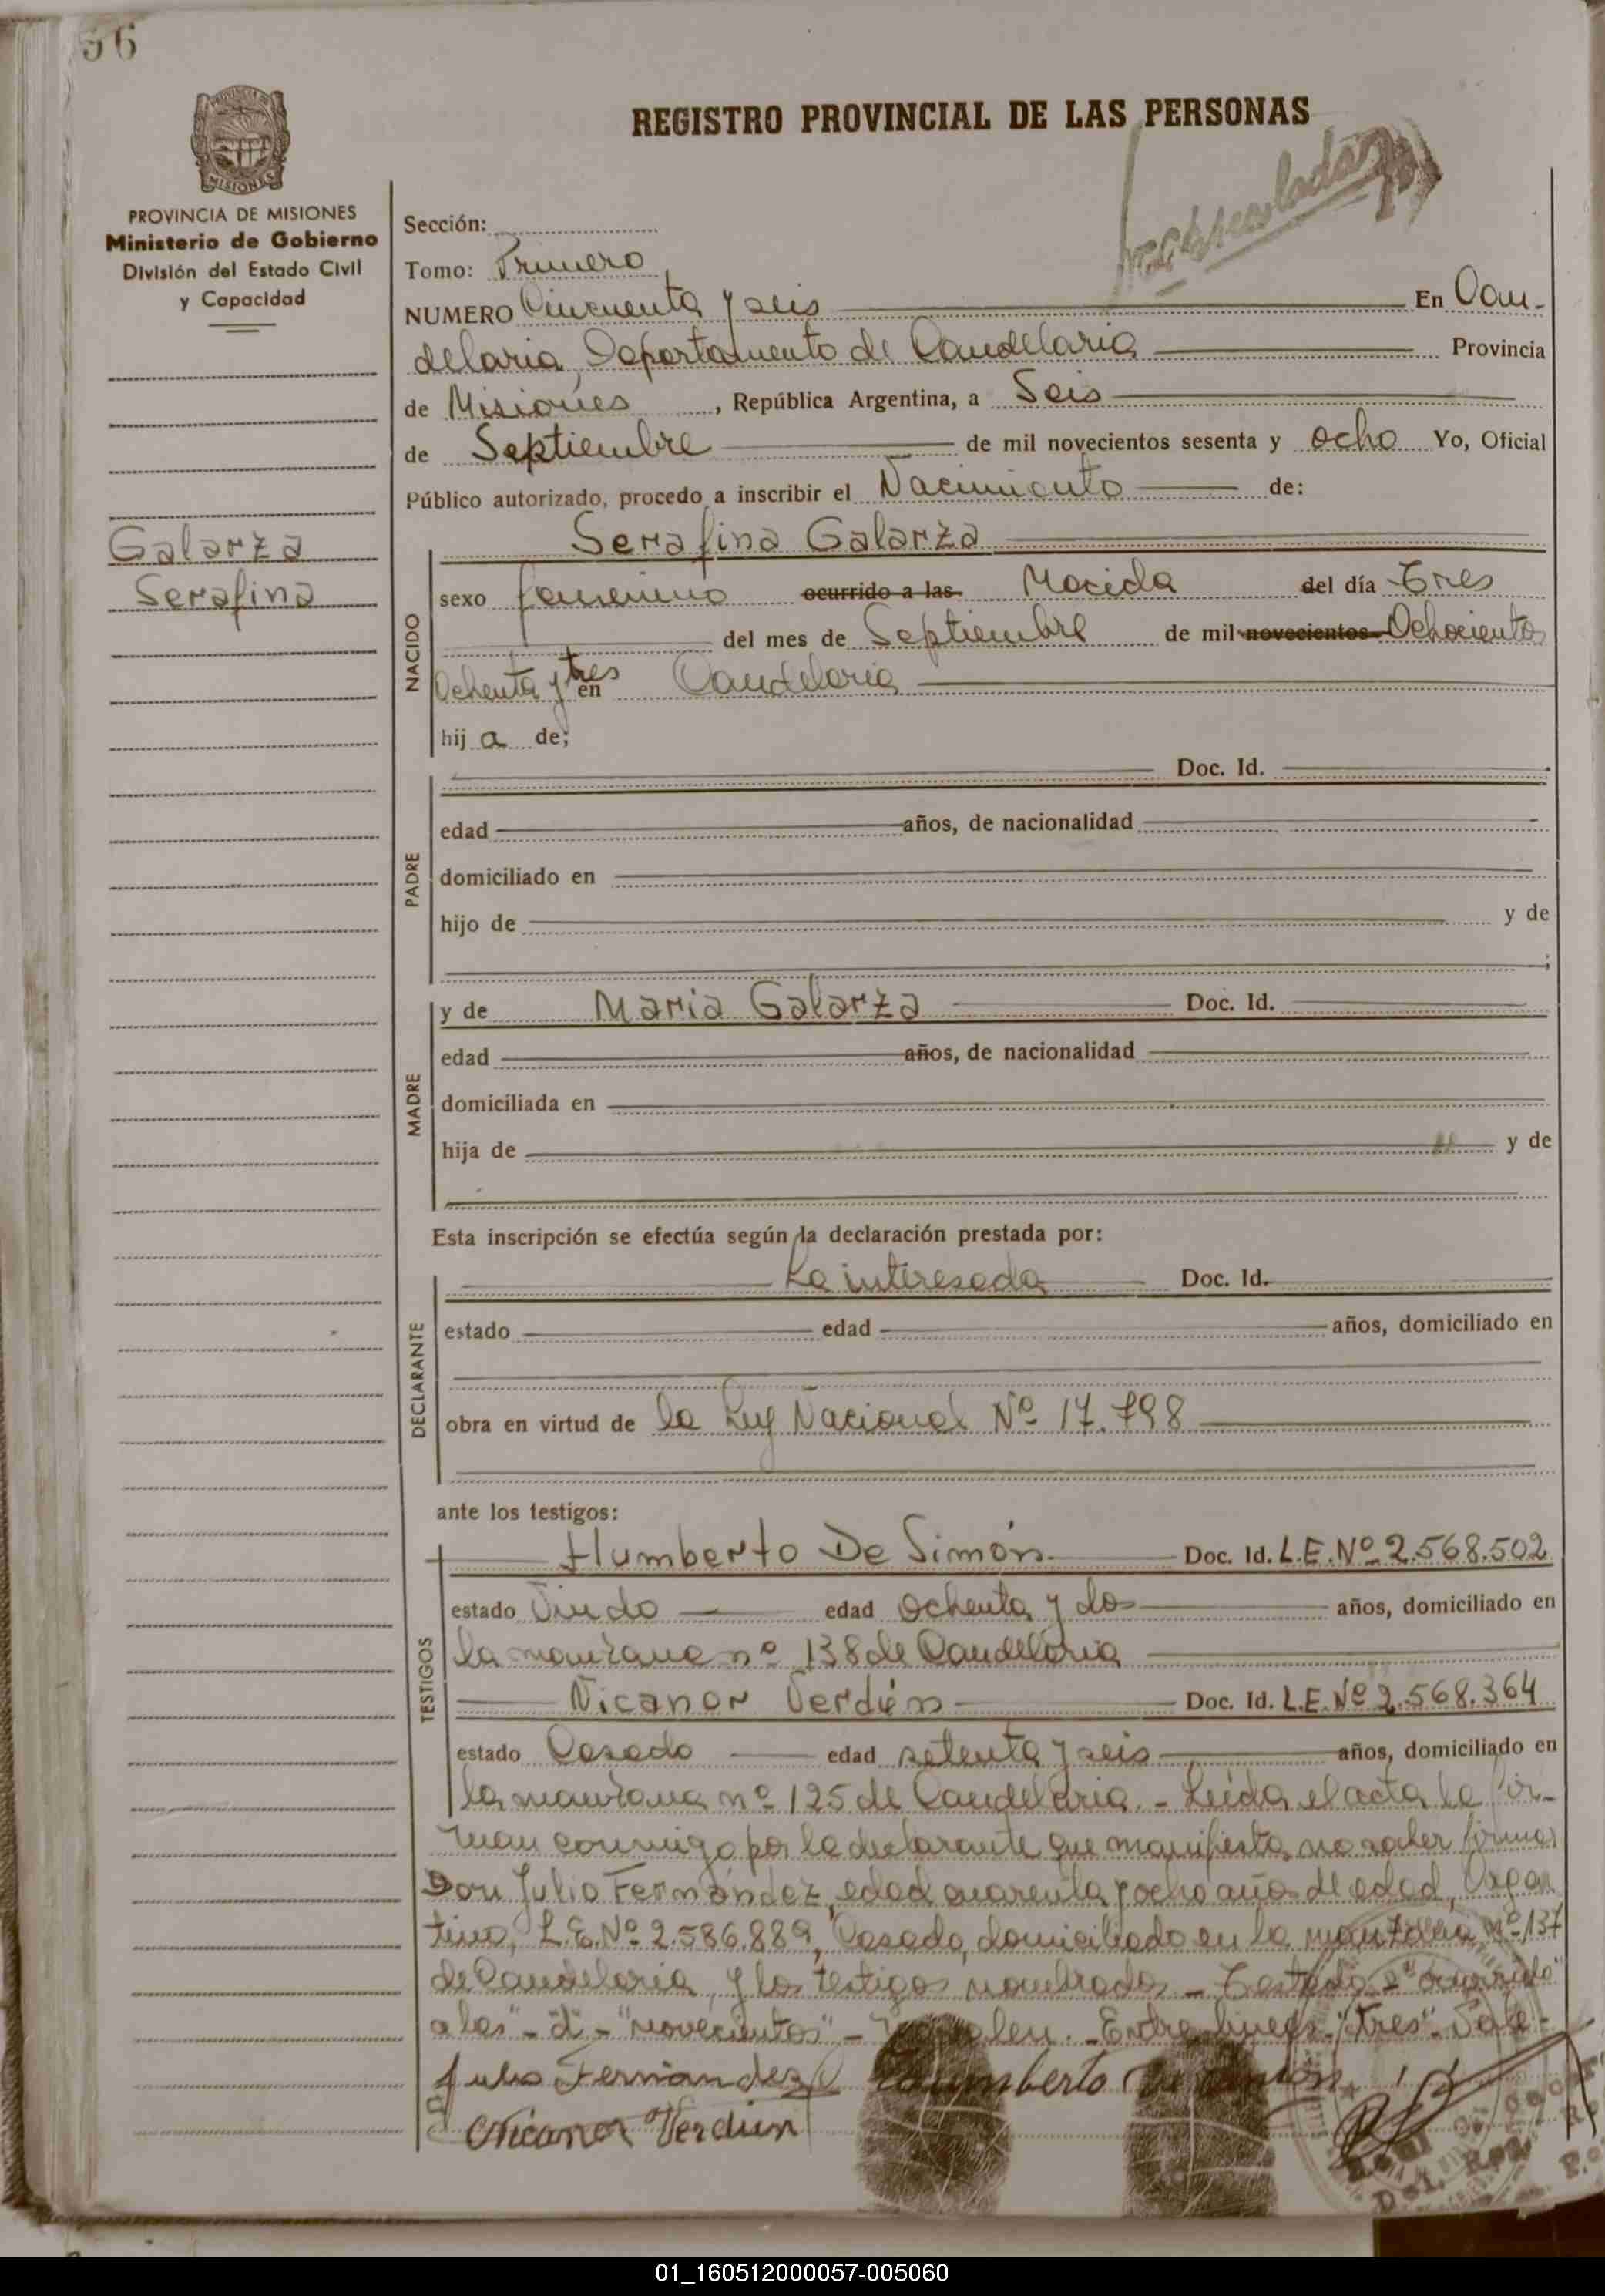 56
REGISTRO PROVINCIAL DE LAS PERSONAS
MISIONES
PROVINCIA DE MISIONES
Ministerio de Gobierno
División del Estado Civil
y Capacidad
Galarza
Serafina
Sección:
Tomo: Primero
NUMERO Cincuenta y seis En Can-
delaria, Departamento de Candelaria Provincia
de Misiones, República Argentina, a Seis
de Septiembre de mil novecientos sesenta y ocho Yo, Oficial
Público autorizado, procedo a inscribir el Nacimiento de:
Serafina Galarza
NACIDO
sexo femenino ocurrido a las Nacida del día Tres
del mes de Septiembre de mil novecientos Ochocientos
Ochenta y tres en Candelaria
hij a de;
Doc. Id.
PADRE
edad años, de nacionalidad
domiciliado en
hijo de y de
MADRE
y de Maria Galarza Doc. Id.
edad años, de nacionalidad
domiciliada en
hija de y de
Esta inscripción se efectúa según la declaración prestada por:
La interesada Doc. Id.
DECLARANTE
estado edad años, domiciliado en
obra en virtud de la Ley Nacional Nº 17.798
ante los testigos:
TESTIGOS
Humberto De Simón Doc. Id. L.E. Nº 2.568.502
estado Viudo edad Ochenta y dos años, domiciliado en
la manzana nº 138 de Candelaria
Nicanor Verdún Doc. Id. L.E. Nº 2.568.364
estado Casado edad setenta y seis años, domiciliado en
la manzana nº 125 de Candelaria. - Leída el acta la fir-
man conmigo por la declarante que manifiesta no saber firmar
Don Julio Fernández, edad cuarenta y ocho años de edad, Argen
tino, L.E. Nº 2.586.889, Casado, domiciliado en la manzana nº 137
de Candelaria, y los testigos nombrados - Testado = "ocurrido
a las" - "d" - "novecientos" - Entre lineas - "tres" - Vale -
Julio Fernández Humberto De Simón
Nicanor Verdún
01_160512000057-005060